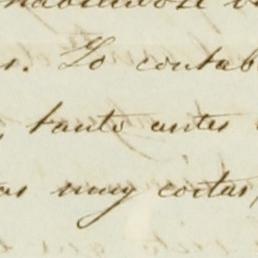 . Lo contab
, tanto antes
as muy cortas,